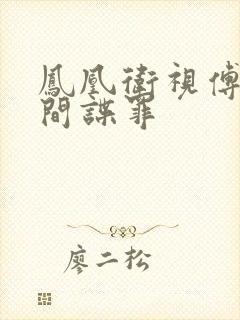 鳳凰衛視傅
間諜罪
廖二松